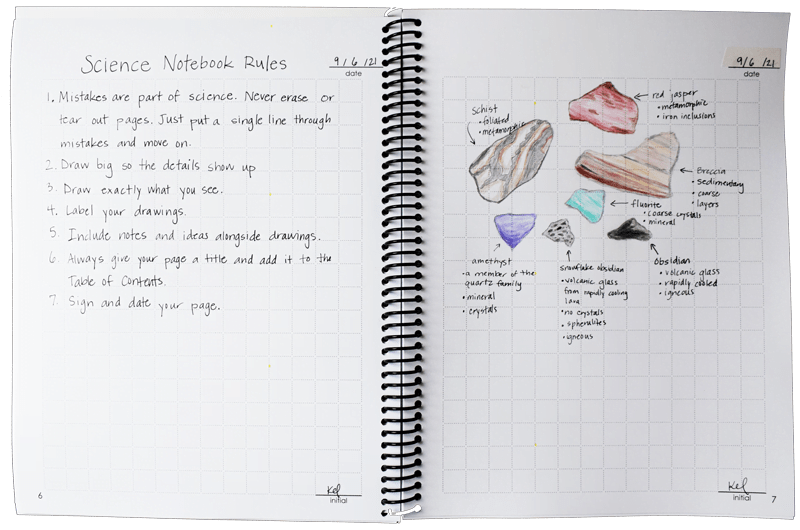 Science Notebook Rules
9/6/21
date
1. Mistakes are part of science. Never erase or
tear out pages. Just put a single line through
mistakes and move on.
2. Draw big so the details show up
3. Draw exactly what you see.
4. Label your drawings.
5. Include notes and ideas alongside drawings.
6. Always give your page a title and add it to the
Table of Contents.
7. Sign and date your page.
6
Kel
initial
9/6/21
date
Schist
• foliated
• metamorphic
red jasper
• metamorphic
• iron inclusions
Breccia
• sedimentary
• coarse
• layers
fluorite
• coarse crystals
• mineral
amethyst
• a member of the
quartz family
• mineral
• crystals
snowflake obsidian
• volcanic glass
from rapidly cooling
lava
• no crystals
• spherulites
• igneous
Obsidian
• volcanic glass
• rapidly cooled
• igneous
Kel
initial
7